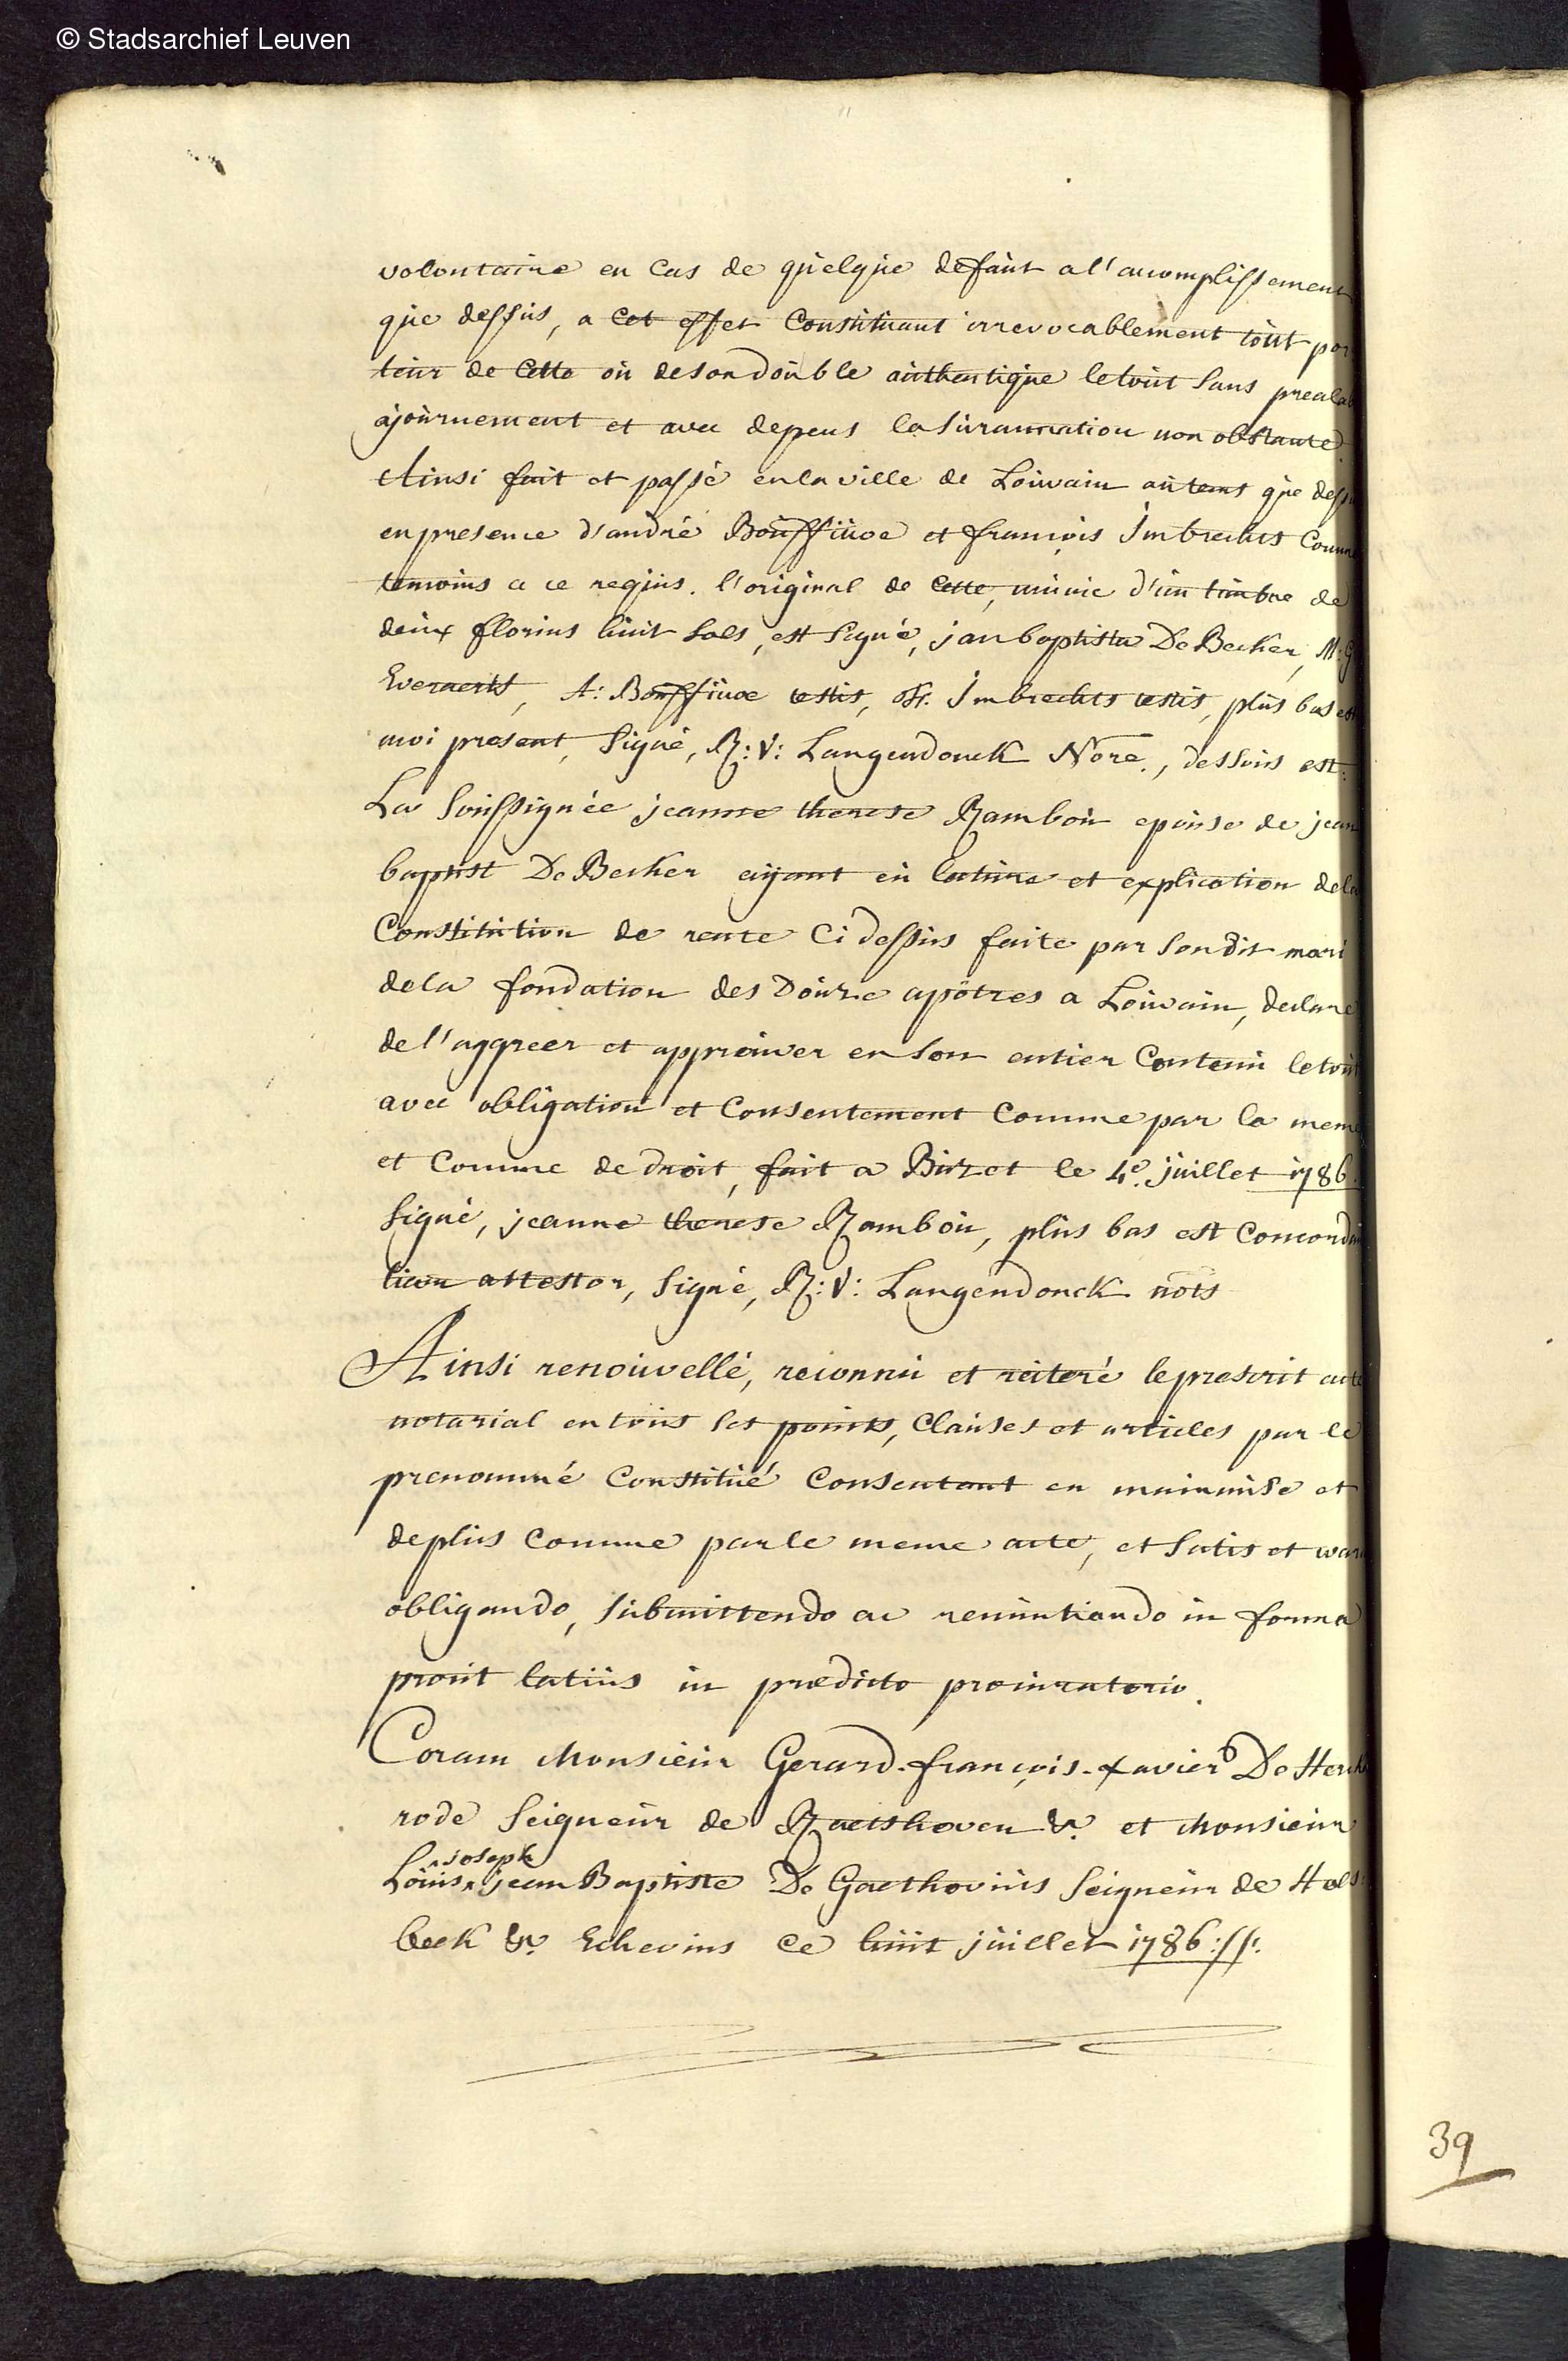 © Stadsarchief Leuven
volontaire en cas de quelque defaut a l'accomplissement
que dessus, a cet effet Constituant irrevocablement tout por
teur de Cette ou deson double authentique letout sans prealab
ajournement et avec depens la surannation non obstante.
Ainsi fait et passé enla ville de Louvain autems que dess
en presence d'andré Bouffiüoe et françois Imbrechts Comme
temoins a ce requis. l'original de Cette, munie d'un timbre de
deux florins huit sols, est signé, jan baptista De Becker, M: G
Everaerts, A: Bouffiüoe testis, fr. Imbrechts testis, plus bas est
moi present, signé, R: V: Langendonck Nore., dessous est:
La soussignée jeanne therese Rambou epouse de jean
baptist De Becker aijant eu lecture et explication dela
Constitution de rente Ci dessus faite par son dit mari
dela fondation des Douze apôtres a Louvain, declare
de l'aggreer et approuver en son entier Contenu letout
avec obligation et Consentement Comme par la meme
et Comme de droit, fait a Birzet le 4e. juillet 1786.
signé, jeanne therese Rambou, plus bas est Concordan
tiam attestor, signé, R: V: Langendonck nots
Ainsi renouvellé, reconnu et reiteré leprescrit acte
notarial en tous ses points, Clauses et articles par le
prenommé Constitué Consentant en mainmise et
deplus Comme par le meme acte, et satis et war
obligando, submittendo ac renuntiando in forma
prout latius in prædicto procuratorio.
Coram Monsieur Gerard-françois-xavier De Herck
rode Seigneur de Raetshoven &. et Monsieur
joseph
Louis jean Baptiste De Gaethovius Seigneur de Hols:
beek &. Echevins ce huit juillet 1786://:
39